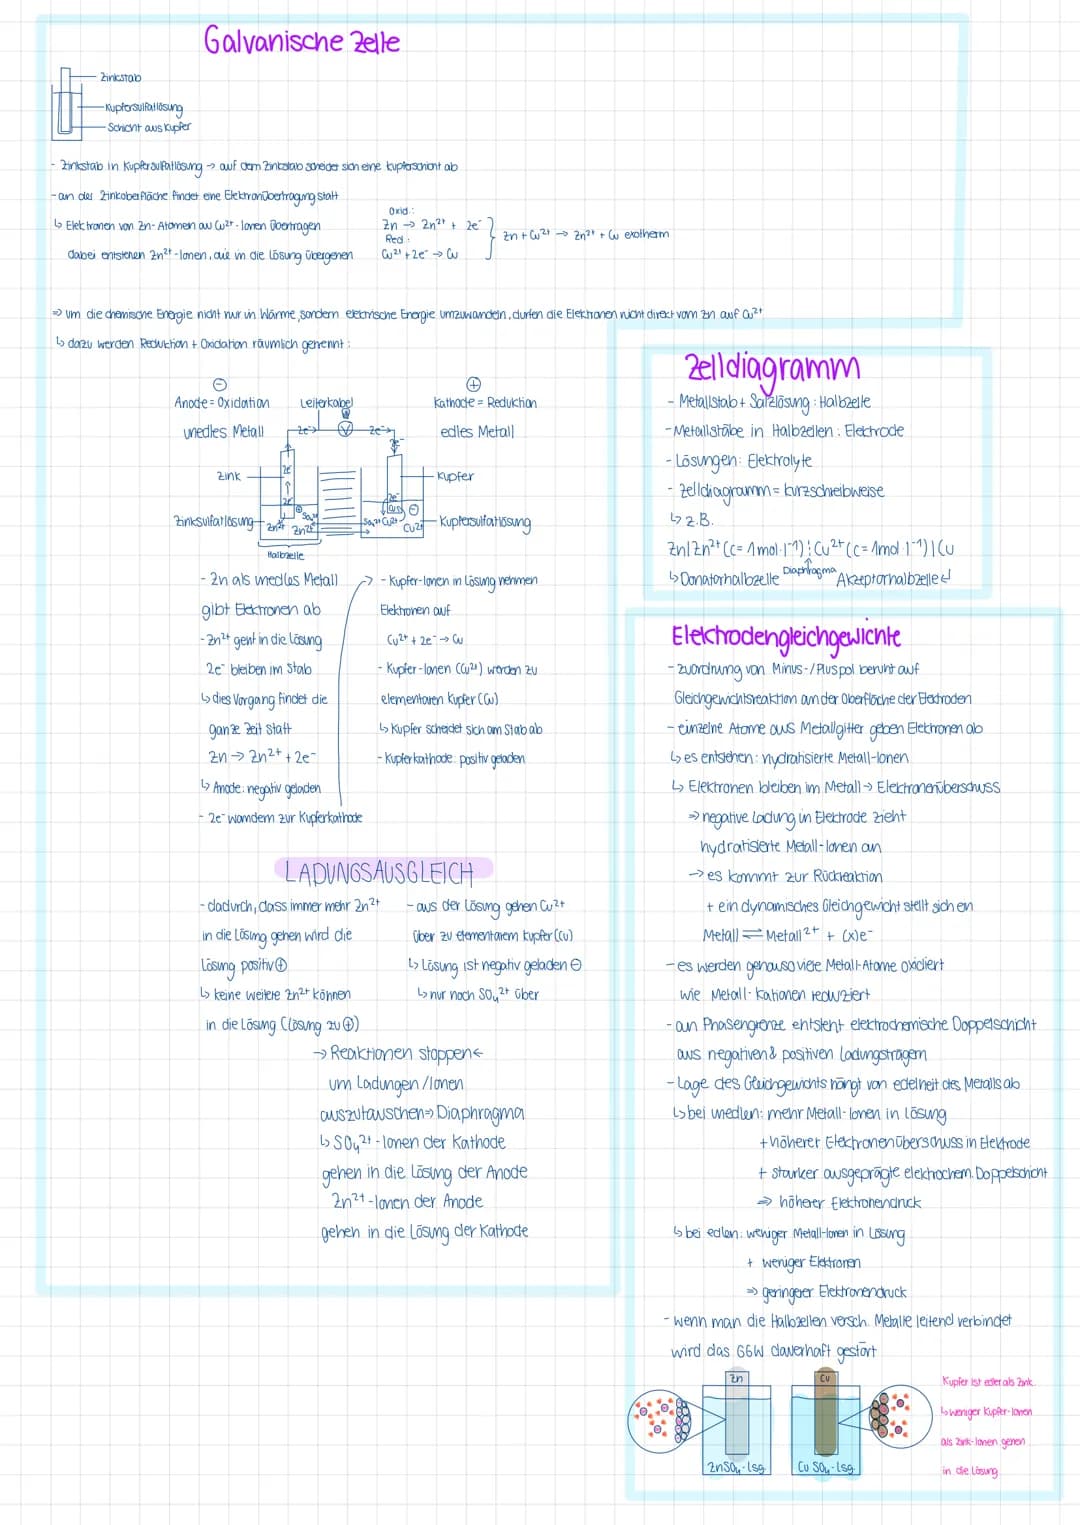 Galvanische Zelle
Zinkstab
Kupfersulfatlösung
Schicht aus Kupfer
- Zinkstab in Kupfersulfatlösung → auf dem Zinkstab scheidet sich eine Kupferschicht ab
- an der Zinkoberfläche findet eine Elektronübertragung statt
↳ Elektronen von Zn-Atomen au Cu²⁺-Ionen übertragen
dabei entstehen Zn²⁺-Ionen, die in die Lösung übergehen
Oxid.:
Zn → Zn²⁺ + 2e⁻
Red.:
Cu²⁺ + 2e⁻ → Cu
Zn + Cu²⁺ → Zn²⁺ + Cu exotherm
⇒ um die chemische Energie nicht nur in Wärme, sondern elektrische Energie umzuwandeln, dürfen die Elektronen nicht direkt vom Zn auf Cu²⁺
↳ dazu werden Reduktion + Oxidation räumlich getrennt:
⊖
Anode = Oxidation
unedles Metall
Leiterkabel
⊕
Kathode = Reduktion
edles Metall
2e⁻
V
2e⁻
Zink
Kupfer
Zinksulfatlösung
Kupfersulfatlösung
Zn²⁺
Zn²⁺
Cu²⁺
Cu²⁺
Halbzelle
- Zn als unedles Metall
gibt Elektronen ab
- Zn²⁺ geht in die Lösung
2e⁻ bleiben im Stab
↳ dies Vorgang findet die
ganze Zeit statt
Zn → Zn²⁺ + 2e⁻
↳ Anode: negativ geladen
- 2e⁻ wandern zur Kupferkathode
- Kupfer-Ionen in Lösung nehmen
Elektronen auf
Cu²⁺ + 2e⁻ → Cu
- Kupfer-Ionen (Cu²⁺) werden zu
elementaren Kupfer (Cu)
↳ Kupfer scheidet sich am Stab ab
- Kupferkathode: positiv geladen
LADUNGSAUSGLEICH
- dadurch, dass immer mehr Zn²⁺
in die Lösung gehen wird die
Lösung positiv ⊕
↳ keine weitere Zn²⁺ können
in die Lösung (Lösung zu ⊕)
- aus der Lösung gehen Cu²⁺
über zu elementarem Kupfer (Cu)
↳ Lösung ist negativ geladen ⊖
↳ nur noch SO₄²⁺ über
→ Reaktionen stoppen ←
um Ladungen/Ionen
auszutauschen ⇒ Diaphragma
↳ SO₄²⁺-Ionen der Kathode
gehen in die Lösung der Anode
Zn²⁺-Ionen der Anode
gehen in die Lösung der Kathode
Zelldiagramm
- Metallstab + Salzlösung: Halbzelle
- Metallstäbe in Halbzellen: Elektrode
- Lösungen: Elektrolyte
- Zelldiagramm = Kurzschreibweise
↳ z.B.
Zn|Zn²⁺ (c = 1mol·l⁻¹) ¦ Cu²⁺ (c = 1mol·l⁻¹)|Cu
↳ Donatorhalbzelle Diaphragma Akzeptorhalbzelle ↲
Elektrodengleichgewichte
- Zuordnung von Minus-/Pluspol beruht auf
Gleichgewichtsreaktion an der Oberfläche der Elektroden
- einzelne Atome aus Metallgitter geben Elektronen ab
↳ es entstehen: hydratisierte Metall-Ionen
↳ Elektronen bleiben im Metall → Elektronenüberschuss
⇒ negative Ladung in Elektrode zieht
hydratisierte Metall-Ionen an
→ es kommt zur Rückreaktion
+ ein dynamisches Gleichgewicht stellt sich ein
Metall ⇌ Metall²⁺ + (x)e⁻
- es werden genauso viele Metall-Atome oxidiert
wie Metall-Kationen reduziert
- an Phasengrenze entsteht elektrochemische Doppelschicht
aus negativen & positiven Ladungsträgern
- Lage des Gleichgewichts hängt von edelheit des Metalls ab
↳ bei unedlen: mehr Metall-Ionen in Lösung
+ höherer Elektronenüberschuss in Elektrode
+ stärker ausgeprägte elektrochem. Doppelschicht
⇒ höherer Elektronendruck
↳ bei edlen: weniger Metall-Ionen in Lösung
+ weniger Elektronen
⇒ geringerer Elektronendruck
- wenn man die Halbzellen versch. Metalle leitend verbindet
wird das GGW dauerhaft gestört
Zn
Cu
ZnSO₄-Lsg.
Cu SO₄-Lsg.
Kupfer ist edler als Zink.
↳ weniger Kupfer-Ionen
als Zink-Ionen gehen
in die Lösung